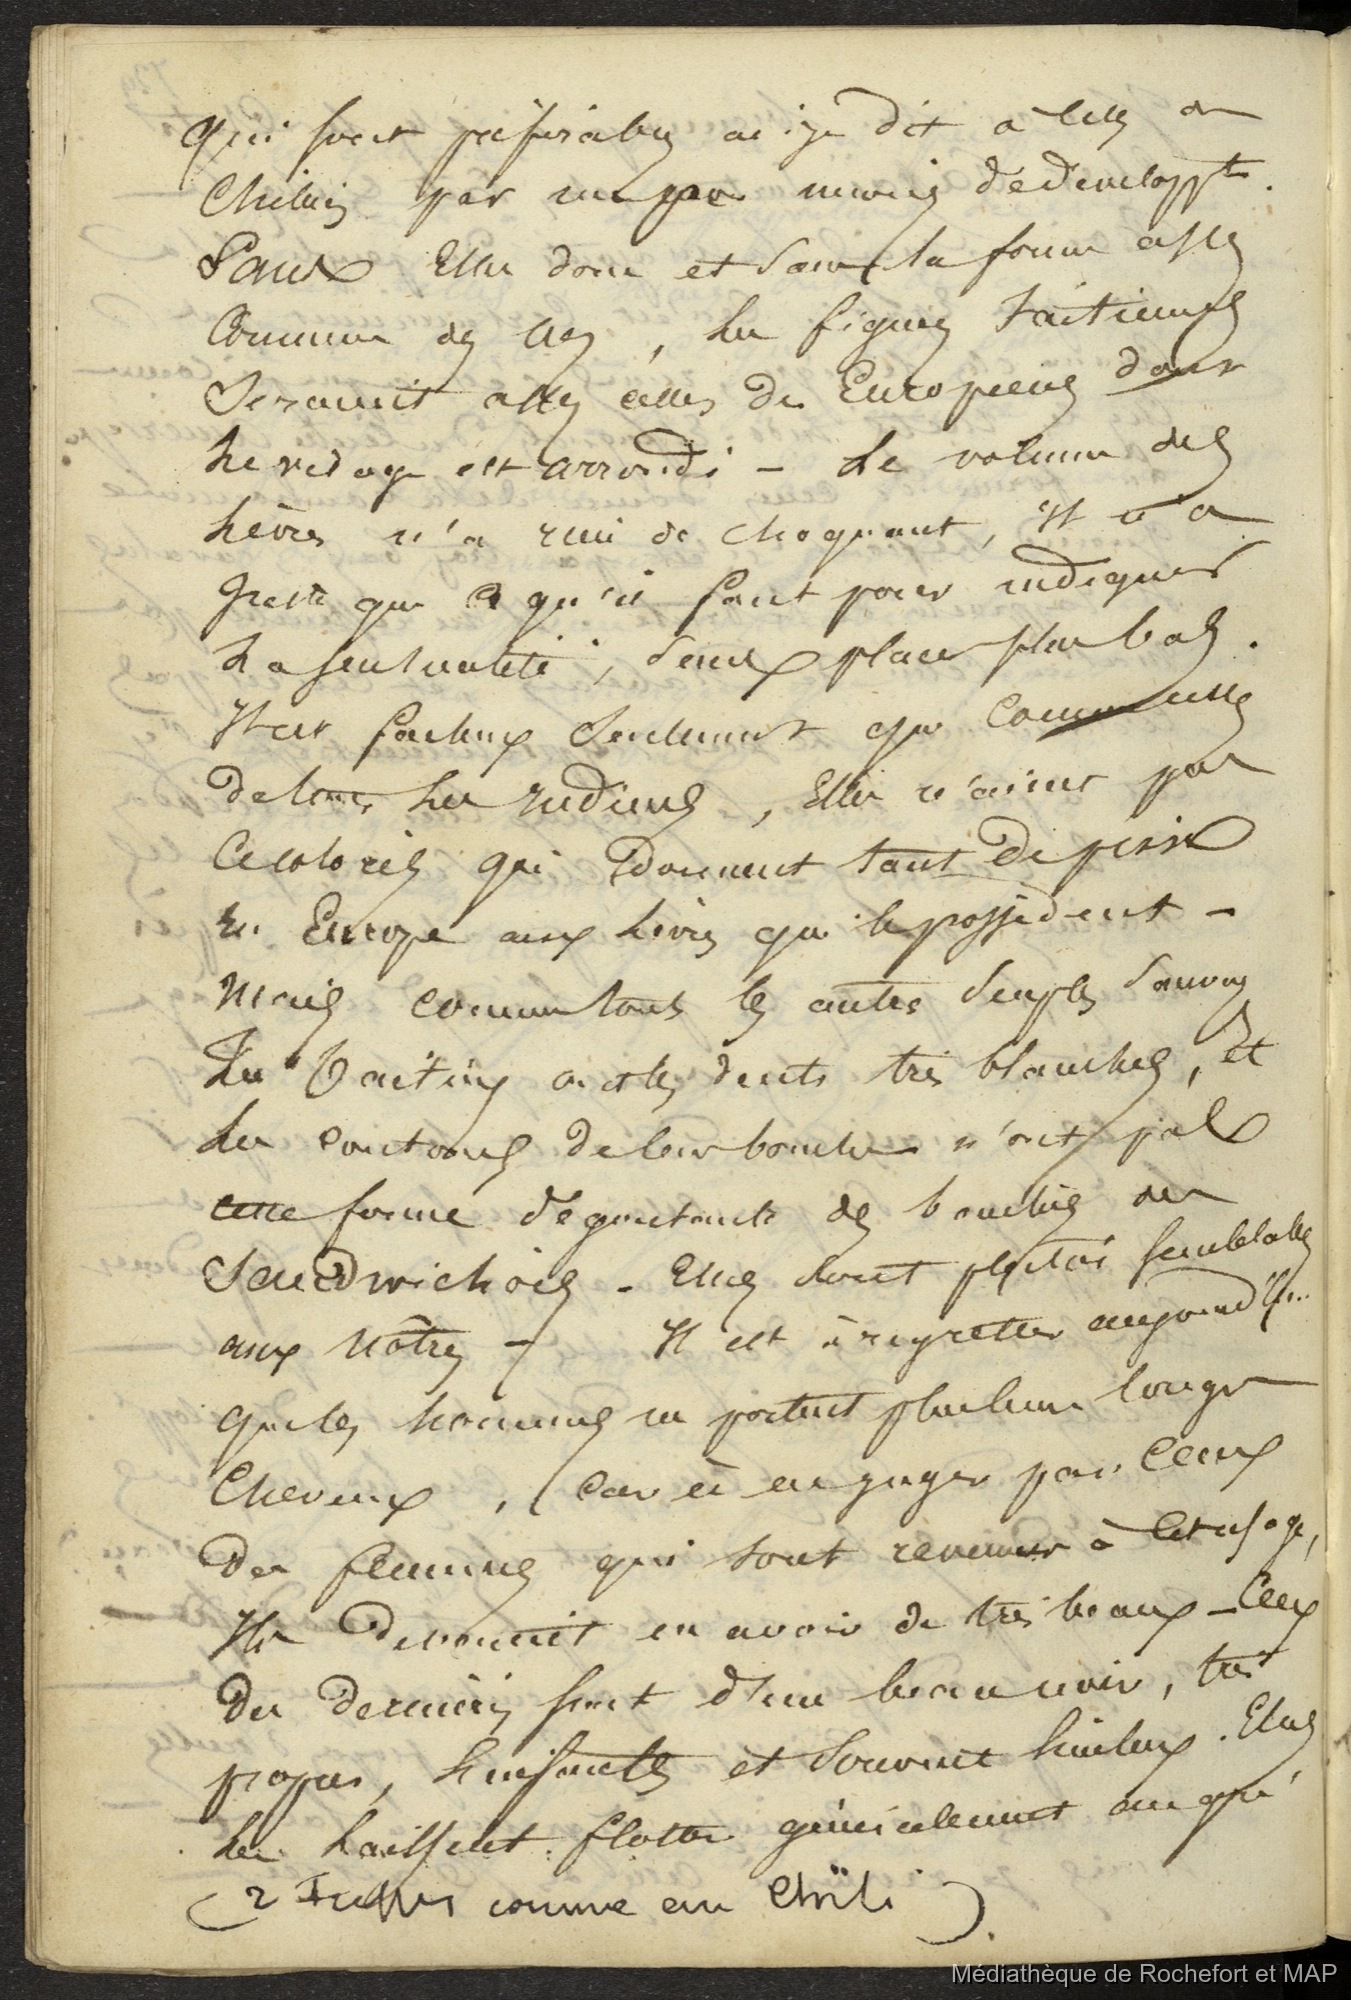 qui sont préférables ai-je dit à celles des
Chiliens par un peu moins de développt.
Sans Elle donc et sans la forme assez
Commune des nez, les figures taïtiennes
Seraient assez celles des Européens dont
le visage est arrondi - Le volume des
lèvres n'a rien de choquant, il n'a
juste que ce qu'il faut pour indiquer
la sensualité, sans plus bas.
Il est facheux seulement que comme celles
de tous les Indiens, Elles n'aient pas
ce coloris qui donnent tant de prix
en Europe aux lèvres qui le possèdent -
Mais comme tous les autres peuples sauvag
Les Taïtiens ont les dents très blanches, et
les contours de leur bouche n'ont pas
cette forme dégoutante des bouches des
Sandwichois - Elles sont plutôt semblables
aux nôtres - Il est à regretter aujourd'hui
que les hommes ne portent plus leurs longs
Cheveux, Car à en juger par Ceux
des femmes qui sont revenues à cet usage,
Ils devraient en avoir de très beaux - Ceux
des dernières sont d'un beau noir, très
propres, luisants et souvent huileux. Elles
les laissent flotter généralement ou qu'
(2 tresses comme au Chili).
Médiathèque de Rochefort et MAP